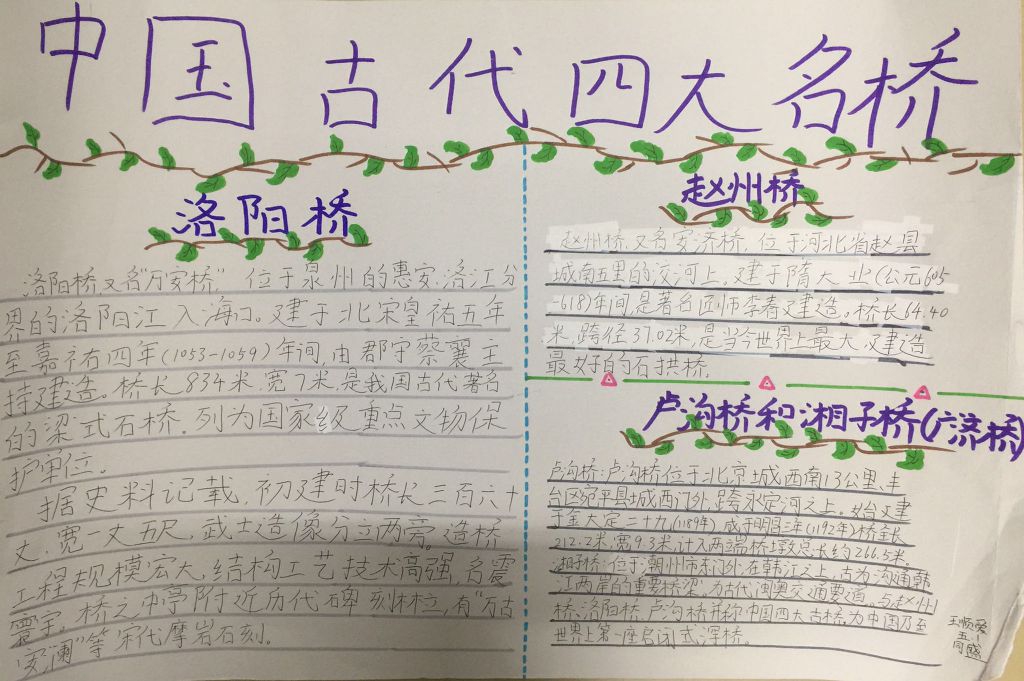 中国古代四大名桥
洛阳桥
洛阳桥又名"万安桥" 位于泉州的惠安、洛江分
界的洛阳江入海口。建于北宋皇祐五年
至嘉祐四年(1053-1059)年间,由郡守蔡襄主
持建造。桥长834米,宽7米,是我国古代著名
的梁式石桥。列为国家级重点文物保
护单位。
据史料记载,初建时桥长三百六十
丈,宽一丈五尺,武士造像分立两旁。造桥
工程规模宏大,结构工艺技术高强,名震
寰宇。桥之中亭附近历代碑刻林立,有"万古
安澜"等宋代摩岩石刻。
赵州桥
赵州桥,又名安济桥,位于河北省赵县
城南五里的洨河上。建于隋大业(公元605
-618)年间,是著名匠师李春建造。桥长64.40
米,跨径37.02米,是当今世界上最大、建造
最好的石拱桥。
卢沟桥和湘子桥(广济桥)
卢沟桥:卢沟桥位于北京城西南13公里,丰
台区宛平县城西门外,跨永定河之上。始建
于金大定二十九(1189年),成于明昌三年(1192年)桥全长
212.2米,宽9.3米,计入两端桥土敦总长约266.5米。
湘子桥:位于潮州市东门外,在韩江之上,古为沟通韩
江两岸的重要桥梁,为古代闽奥交通要道。与赵州
桥、洛阳桥、卢沟桥并称中国四大古桥,为中国乃至
世界上第一座启闭式浮桥。
王顺爱
五.1
同盛